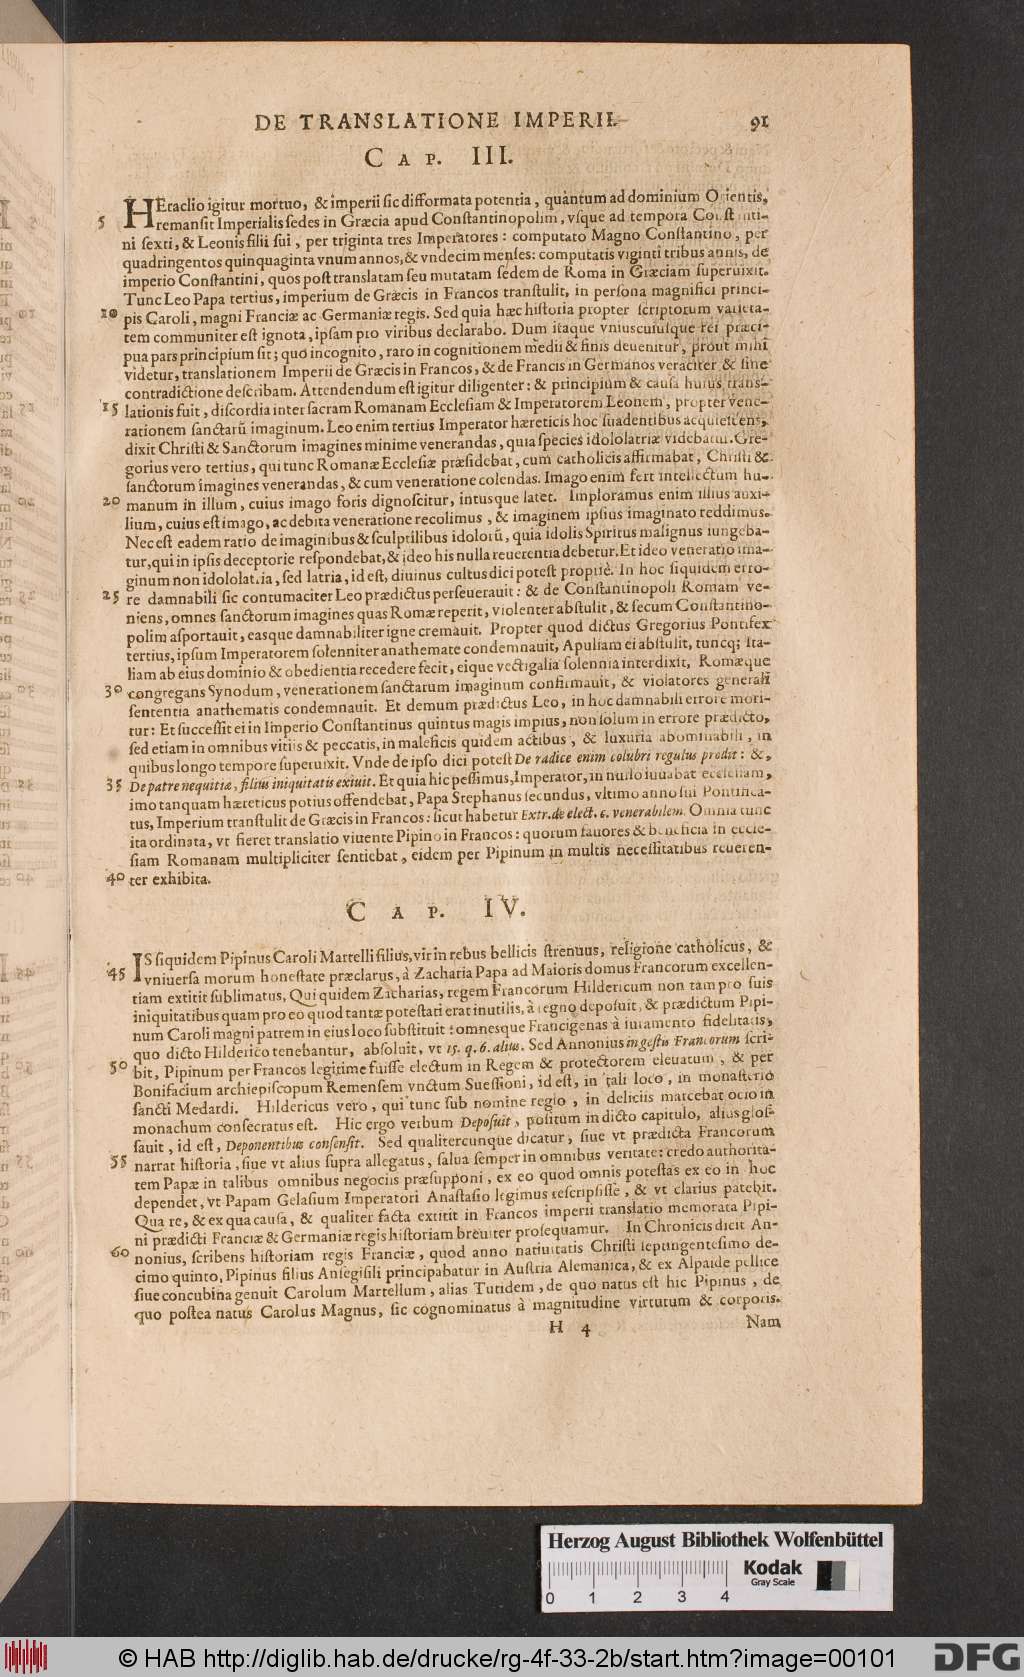 DE TRANSLATIONE IMPERII. 91
CAP. III.
HEraclio igitur mortuo, & imperii sic difformata potentia, quantum ad dominium Orientis,
5 remansit Imperialis sedes in Græcia apud Constantinopolim, vsque ad tempora Constanti-
ni sexti, & Leonis filii sui, per triginta tres Imperatores: computato Magno Constantino, per
quadringentos quinquaginta vnum annos, & vndecim menses: computatis viginti tribus annis, de
imperio Constantini, quos post translatam seu mutatam sedem de Roma in Græciam superuixit.
Tunc Leo Papa tertius, imperium de Græcis in Francos transtulit, in persona magnifici princi-
10 pis Caroli, magni Franciæ ac Germaniæ regis. Sed quia hæc historia propter scriptorum varieta-
tem communiter est ignota, ipsam pro viribus declarabo. Dum itaque vniuscuiusque rei præci-
pua pars principium sit; quo incognito, raro in cognitionem medii & finis deuenitur, prout mihi
videtur, translationem Imperii de Græcis in Francos, & de Francis in Germanos veraciter & sine
contradictione describam. Attendendum est igitur diligenter: & principium & causa huius trans-
15 lationis fuit, discordia inter sacram Romanam Ecclesiam & Imperatorem Leonem, propter vene-
rationem sanctarũ imaginum. Leo enim tertius Imperator hæreticis hoc suadentibus acquiescens,
dixit Christi & Sanctorum imagines minime venerandas, quia species idololatriæ videbatur. Gre-
gorius vero tertius, qui tunc Romanæ Ecclesiæ præsidebat, cum catholicis affirmabat, Christi &
sanctorum imagines venerandas, & cum veneratione colendas. Imago enim fert intellectum hu-
20 manum in illum, cuius imago foris dignoscitur, intusque latet. Imploramus enim illius auxi-
lium, cuius est imago, ac debita veneratione recolimus, & imaginem ipsius imaginato reddimus.
Nec est eadem ratio de imaginibus & sculptilibus idolorũ, quia idolis Spiritus malignus iungeba-
tur, qui in ipsis deceptorie respondebat, & ideo his nulla reuerentia debetur. Et ideo veneratio ima-
ginum non idololatria, sed latria, id est, diuinus cultus dici potest propriè. In hoc siquidem erro-
25 re damnabili sic contumaciter Leo prædictus perseuerauit: & de Constantinopoli Romam ve-
niens, omnes sanctorum imagines quas Romæ reperit, violenter abstulit, & secum Constantino-
polim asportauit, easque damnabiliter igne cremauit. Propter quod dictus Gregorius Pontifex
tertius, ipsum Imperatorem solenniter anathemate condemnauit, Apuliam ei abstulit, tuncq; Ita-
liam ab eius dominio & obedientia recedere fecit, eique vectigalia solennia interdixit, Romæque
30 congregans Synodum, venerationem sanctarum imaginum confirmauit, & violatores generali
sententia anathematis condemnauit. Et demum prædictus Leo, in hoc damnabili errore mori-
tur: Et successit ei in Imperio Constantinus quintus magis impius, non solum in errore prædicto,
sed etiam in omnibus vitiis & peccatis, in maleficis quidem actibus, & luxuria abominabili, in
quibus longo tempore superuixit. Vnde de ipso dici potest De radice enim colubri regulus prodit: &,
35 De patre nequitiæ, filius iniquitatis exiuit. Et quia hic pessimus, Imperator, in nullo iuuabat ecclesiam,
imo tanquam hæreticus potius offendebat, Papa Stephanus secundus, vltimo anno sui Pontifica-
tus, Imperium transtulit de Græcis in Francos: sicut habetur Extr. de elect. c. venerabilem. Omnia tunc
ita ordinata, vt fieret translatio viuente Pipino in Francos: quorum fauores & beneficia in eccle-
siam Romanam multipliciter sentiebat, eidem per Pipinum in multis necessitatibus reueren-
40 ter exhibita.
CAP. IV.
IS siquidem Pipinus Caroli Martelli filius, vir in rebus bellicis strenuus, religione catholicus, &
45 vniuersa morum honestate præclarus, à Zacharia Papa ad Maioris domus Francorum excellen-
tiam extitit sublimatus, Qui quidem Zacharias, regem Francorum Hildericum non tam pro suis
iniquitatibus quam pro eo quod tantæ potestati erat inutilis, à regno deposuit, & prædictum Pipi-
num Caroli magni patrem in eius loco substituit: omnesque Francigenas à iuramento fidelitatis,
quo dicto Hilderico tenebantur, absoluit, vt 15. q. 6. alius. Sed Annonius in gestis Francorum scri-
50 bit, Pipinum per Francos legitime fuisse electum in Regem & protectorem eleuatum, & per
Bonifacium archiepiscopum Remensem vnctum Suessioni, id est, in tali loco, in monasterio
sancti Medardi. Hildericus vero, qui tunc sub nomine regio, in deliciis marcebat ocio in
monachum consecratus est. Hic ergo verbum Deposuit, positum in dicto capitulo, alius glos-
sauit, id est, Deponentibus consensit. Sed qualitercunque dicatur, siue vt prædicta Francorum
55 narrat historia, siue vt alius supra allegatus, salua semper in omnibus veritate: credo authorita-
tem Papæ in talibus omnibus negociis præsupponi, ex eo quod omnis potestas ex eo in hoc
dependet, vt Papam Gelasium Imperatori Anastasio legimus rescripsisse, & vt clarius patebit.
Qua re, & ex qua causa, & qualiter facta extitit in Francos imperii translatio memorata Pipi-
ni prædicti Franciæ & Germaniæ regis historiam breuiter prosequamur. In Chronicis dicit An-
60 nonius, scribens historiam regis Franciæ, quod anno natiuitatis Christi septingentesimo de-
cimo quinto, Pipinus filius Ansegisili principabatur in Austria Alemanica, & ex Alpaide pellice
siue concubina genuit Carolum Martellum, alias Tutidem, de quo natus est hic Pipinus, de
quo postea natus Carolus Magnus, sic cognominatus à magnitudine virtutum & corporis.
H 4 Nam
Herzog August Bibliothek Wolfenbüttel
Kodak
Gray Scale
0 1 2 3 4
© HAB http://diglib.hab.de/drucke/rg-4f-33-2b/start.htm?image=00101
DFG